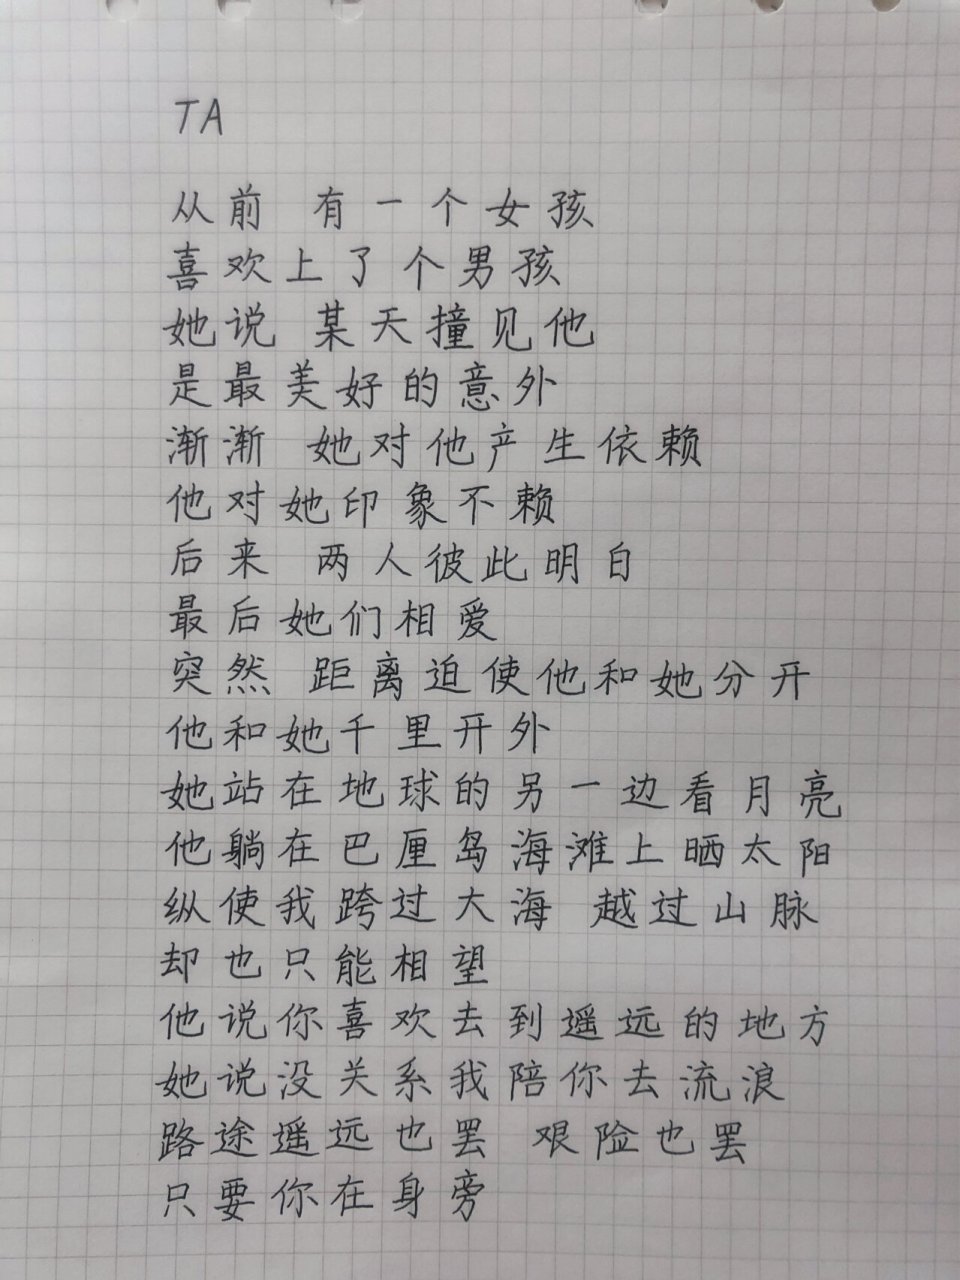 TA
从前 有一个女孩
喜欢上了个男孩
她说 某天撞见他
是最美好的意外
渐渐 她对他产生依赖
他对她印象不赖
后来 两人彼此明白
最后她们相爱
突然 距离迫使他和她分开
他和她千里开外
她站在地球的另一边看月亮
他躺在巴厘岛海滩上晒太阳
纵使我跨过大海 越过山脉
却也只能相望
他说你喜欢去到遥远的地方
她说没关系我陪你去流浪
路途遥远也罢 艰险也罢
只要你在身旁